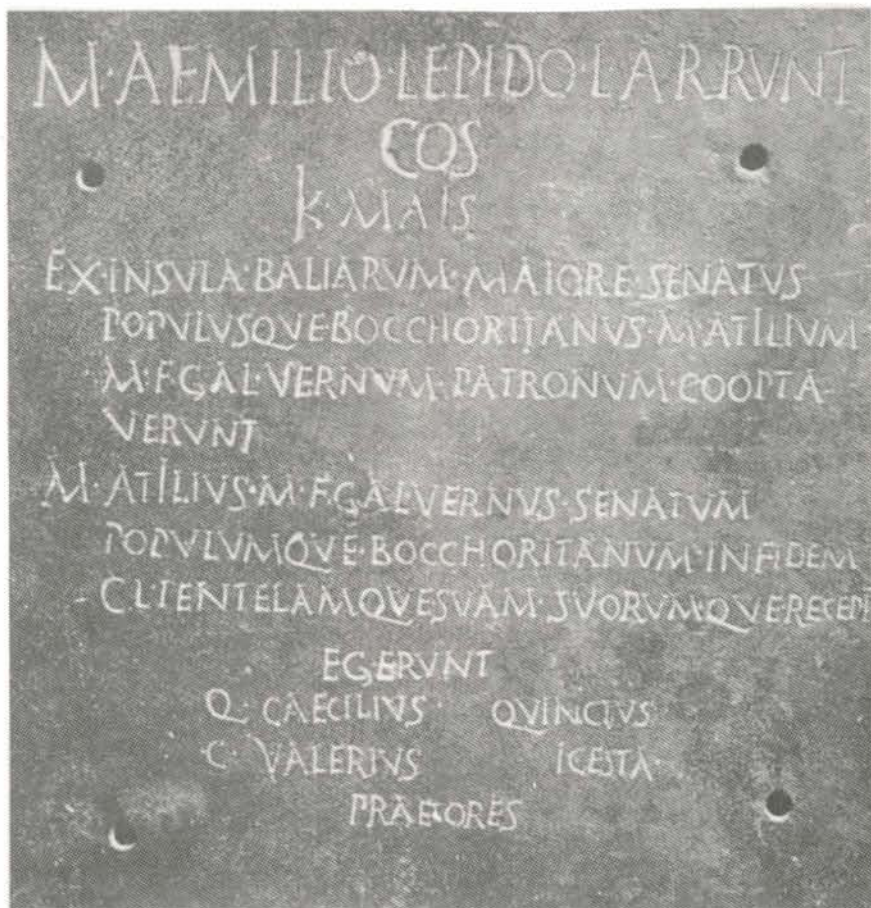 M·AEMILIO·LEPIDO·L·ARRVNT
COS
K·MAIS
EX·INSVLA·BALIARVM·MAIORE·SENATVS
POPVLVSQVE·BOCCHORITANVS·M·ATILIVM
M·F·GAL·VERNVM·PATRONVM·COOPTA
VERVNT
M·ATILIVS·M·F·GAL·VERNVS·SENATVM
POPVLVMQVE·BOCCHORITANVM·IN FIDEM
CLIENTELAMQVE SVAM·SVORVMQVE·RECEPIT
EGERVNT
Q·CAECILIVS QVINCTVS
C·VALERIVS ICESTA
PRAETORES